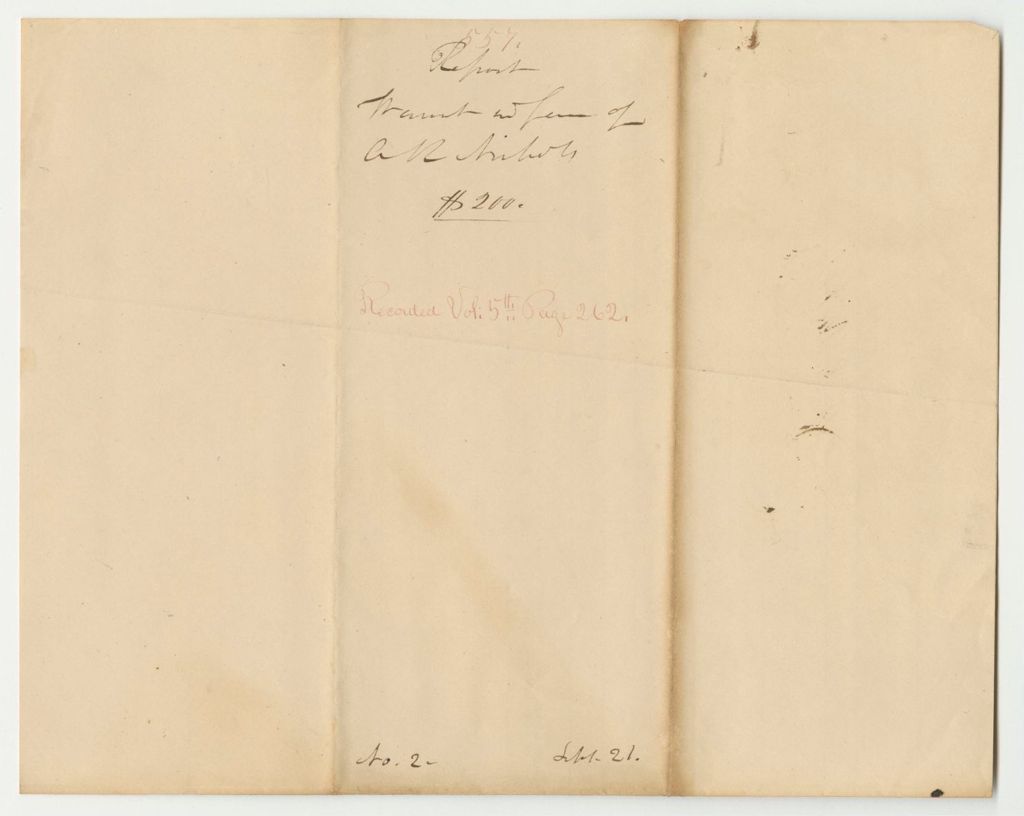 557.
Report
Warrant in favor of
A R Nichols
$200.
Recorded Vol: 5th Page 262.
No. 2-
Sept. 21.